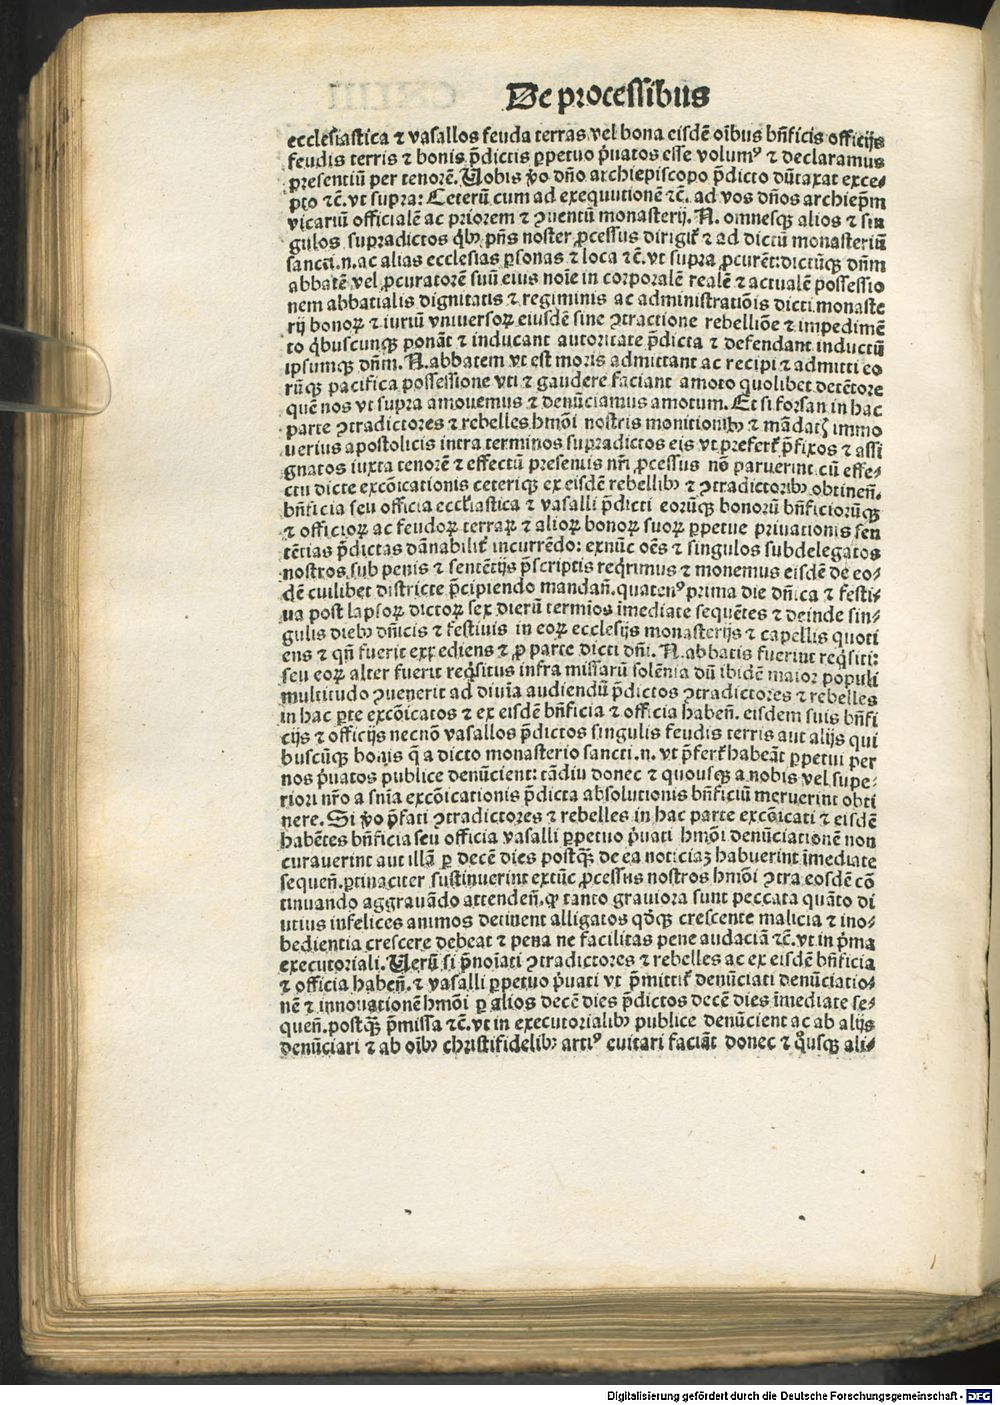 De processibus
ecclesiastica ⁊ vasallos feuda terras vel bona eisdē oībus bn̄ficis officijs
feudis terris ⁊ bonis p̄dictis ꝑpetuo p̓uatos esse volumꝰ ⁊ declaramus
presentiū per tenorē. Uobis ꝟo dn̄o archiepiscopo p̄dicto dūtaxat exce-
pto ⁊c̄. vt supra: Ceterū cum ad exequutionē ⁊c̄. ad vos dn̄os archiep̄m
vicariū officialē ac priorem ⁊ ꝯuentū monasterij. N. omnesqꝫ alios ⁊ sin
gulos supradictos q̓bꝰ pn̄s noster ꝓcessus dirigit᷑ ⁊ ad dictū monasteriū
sancti.n. ac alias ecclesias ꝑsonas ⁊ loca ⁊c̄. vt supra ꝓcurēt: dictūqꝫ dn̄m
abbatē vel ꝓcuratorē suū eius noīe in corporalē realē ⁊ actualē possessio
nem abbatialis dignitatis ⁊ regiminis ac administratiōis dicti monaste
rij bonoꝝ ⁊ iuriū vniuersoꝝ eiusdē sine ꝯtractione rebelliōe ⁊ impedimē
to q̓buscunqꝫ ponāt ⁊ inducant autoritate p̄dicta ⁊ defendant inductū
ipsumqꝫ dn̄m. N. abbatem vt est moris admittant ac recipi ⁊ admitti eo
rūqꝫ pacifica possessione vti ⁊ gaudere faciant amoto quolibet detētore
quē nos vt supra amouemus ⁊ denūciamus amotum. Et si forsan in hac
parte ꝯtradictores ⁊ rebelles hmōi nostris monitionibꝫ ⁊ mādatꝭ immo
verius apostolicis intra terminos supradictos eis vt prefert᷑ p̄fixos ⁊ assi
gnatos iuxta tenorē ⁊ effectū presentis nr̄i ꝓcessus nō paruerint cū effe-
ctu dicte excōicationis ceterisqꝫ ex eisdē rebellibꝫ ⁊ ꝯtradictoribꝫ obtinen̄.
bn̄ficia seu officia eccl̓iastica ⁊ vasalli p̄dicti eorūqꝫ bonorū bn̄ficiorūqꝫ
⁊ officioꝝ ac feudoꝝ terraꝝ ⁊ alioꝝ bonoꝝ suoꝝ ꝑpetue priuationis sen
tētias p̄dictas dānabilit᷑ incurrēdo: exnūc oēs ⁊ singulos subdelegatos
nostros sub penis ⁊ sentētijs p̄scriptis req̓rimus ⁊ monemus eisdē de eo-
dē cuilibet districte p̄cipiendo mandan̄. quatenꝰ prima die dn̄ica ⁊ festi-
ua post lapsoꝝ dictoꝝ sex dierū termios īmediate sequētes ⁊ deinde sin-
gulis diebꝫ dn̄icis ⁊ festiuis in eoꝝ ecclesijs monasterijs ⁊ capellis quoti
ens ⁊ qn̄ fuerit expediens ⁊ ꝓ parte dicti dn̄i. N. abbatis fuerint req̓siti:
seu eoꝝ alter fuerit req̓situs infra missarū solēnia dū ibidē maior populi
multitudo ꝯuenerit ad diuīa audiendū p̄dictos ꝯtradictores ⁊ rebelles
in hac ꝑte excōicatos ⁊ ex eisdē bn̄ficia ⁊ officia haben̄. eisdem suis bn̄fi
cijs ⁊ officijs necnō vasallos p̄dictos singulis feudis terris aut alijs qui
buscūqꝫ bonis q̄ a dicto monasterio sancti.n. vt p̄fert᷑ habeāt ꝑpetui per
nos p̓uatos publice denūcient: tādiu donec ⁊ quousqꝫ a nobis vel supe-
riori nr̄o a sn̄ia excōicationis p̄dicta absolutionis bn̄ficiū meruerint obti
nere. Si ꝟo p̄fati ꝯtradictores ⁊ rebelles in hac parte excōicati ⁊ eisdē
habētes bn̄ficia seu officia vasalli ꝑpetuo p̓uati hmōi denūciationē non
curauerint aut illā ꝑ decē dies postqꝫ̄ de ea noticiaꝫ habuerint īmediate
sequen̄. ꝑtinaciter sustinuerint extūc ꝓcessus nostros hmōi ꝯtra eosdē cō
tinuando aggrauādo attenden̄. ꝙ tanto grauiora sunt peccata quāto di
utius infelices animos detinent alligatos qōqꝫ crescente malicia ⁊ ino-
bedientia crescere debeat ⁊ pena ne facilitas pene audaciā ⁊c̄. vt in p̓ma
executoriali. Uerū si p̄noīati ꝯtradictores ⁊ rebelles ac ex eisdē bn̄ficia
⁊ officia haben̄. ⁊ vasalli ꝑpetuo p̓uati vt p̄mittit᷑ denūciati denūciatio-
nē ⁊ innouationē hmōi ꝑ alios decē dies p̄dictos decē dies īmediate se-
quen̄. postqꝫ̄ p̄missa ⁊c̄. vt in executorialibꝫ publice denūcient ac ab alijs
denūciari ⁊ ab oībꝫ christifidelibꝫ artiꝰ euitari faciāt donec ⁊ q̊usqꝫ ali-
Digitalisierung gefördert durch die Deutsche Forschungsgemeinschaft - DFG